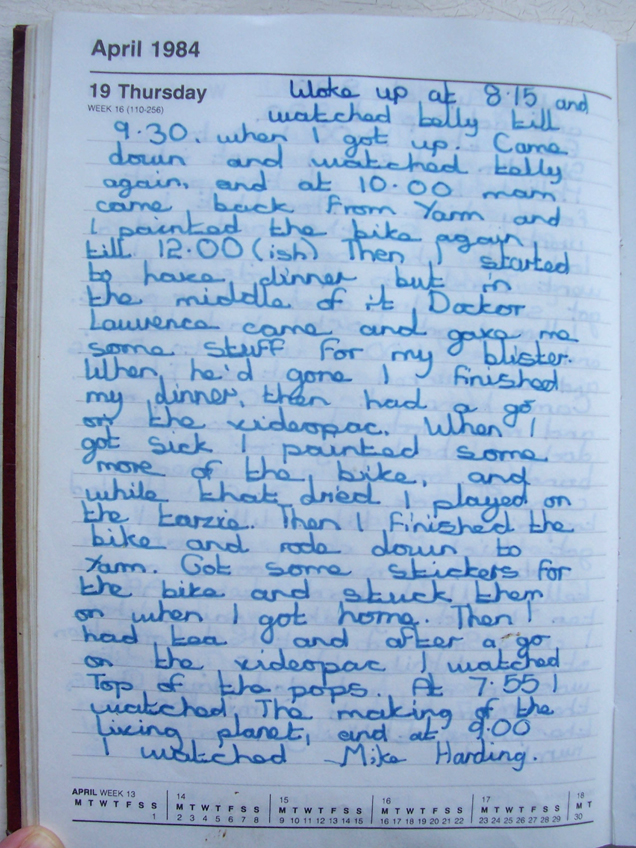 April 1984
19 Thursday
WEEK 16 (110-256)
Woke up at 8.15 and
watched telly till
9.30, when I got up. Came
down and watched telly
again, and at 10.00 mam
came back from Yarm and
I painted the bike again
till 12.00 (ish) Then I started
to have dinner but in
the middle of it Doctor
Lawrence came and gave me
some stuff for my blister.
When he'd gone I finished
my dinner, then had a go
on the videopac. When I
got sick I painted some
more of the bike, and
while that dried I played on
the tarzie. Then I finished the
bike and rode down to
Yarm. Got some stickers for
the bike and stuck them
on when I got home. Then I
had tea and after a go
on the videopac I watched
Top of the pops. At 7.55 I
watched The making of the
living planet, and at 9.00
I watched Mike Harding.
APRIL WEEK 13 14 15 16 17 18
M T W T F S S M T W T F S S M T W T F S S M T W T F S S M T W T F S S M T
1 2 3 4 5 6 7 8 9 10 11 12 13 14 15 16 17 18 19 20 21 22 23 24 25 26 27 28 29 30